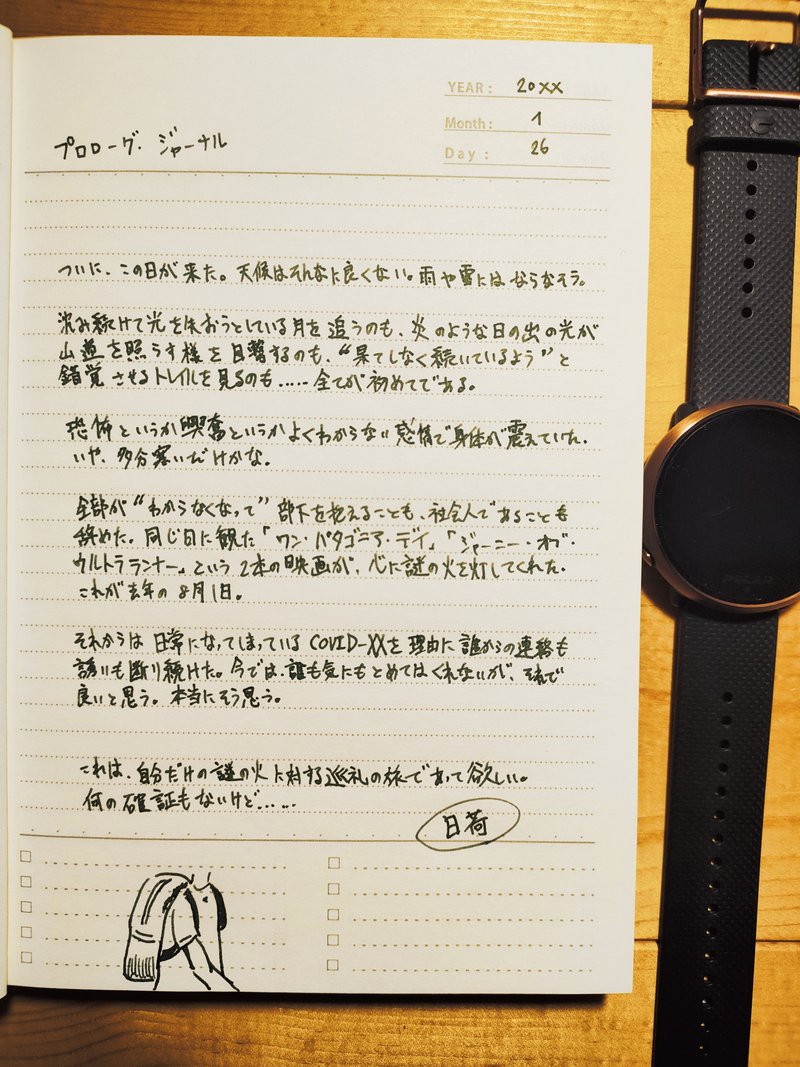 YEAR : 20XX
Month : 1
Day : 26
プロローグ. ジャーナル
ついに、この日が来た。天候はそんなに良くない。雨や雪にはならなそう。
沈み続けて光を失おうとしている月を追うのも、炎のような日の出の光が
山道を照らす様を目撃するのも、“果てしなく続いているよう”と
錯覚させるトレイルを見るのも.....全てが初めてである。
恐怖というか興奮というかよくわからない感情で身体が震えていた.
いや、多分寒いだけかな。
全部が“わからなくなって”部下を抱えることも、社会人であることも
辞めた。同じ日に観た「ワン・パタゴニア・デイ」「ジャーニー・オブ・
ウルトラランナー」という2本の映画が、心に謎の火を灯してくれた.
これが去年の8月1日。
それからは日常になってしまっているCOVID-XXを理由に誰からの連絡も
誘いも断り続けた。今では、誰も気にもとめてはくれないが、それで
良いと思う。本当にそう思う。
これは、自分だけの謎の火に対する巡礼の旅であって欲しい。
何の確証もないけど.....
日荷
POLAR